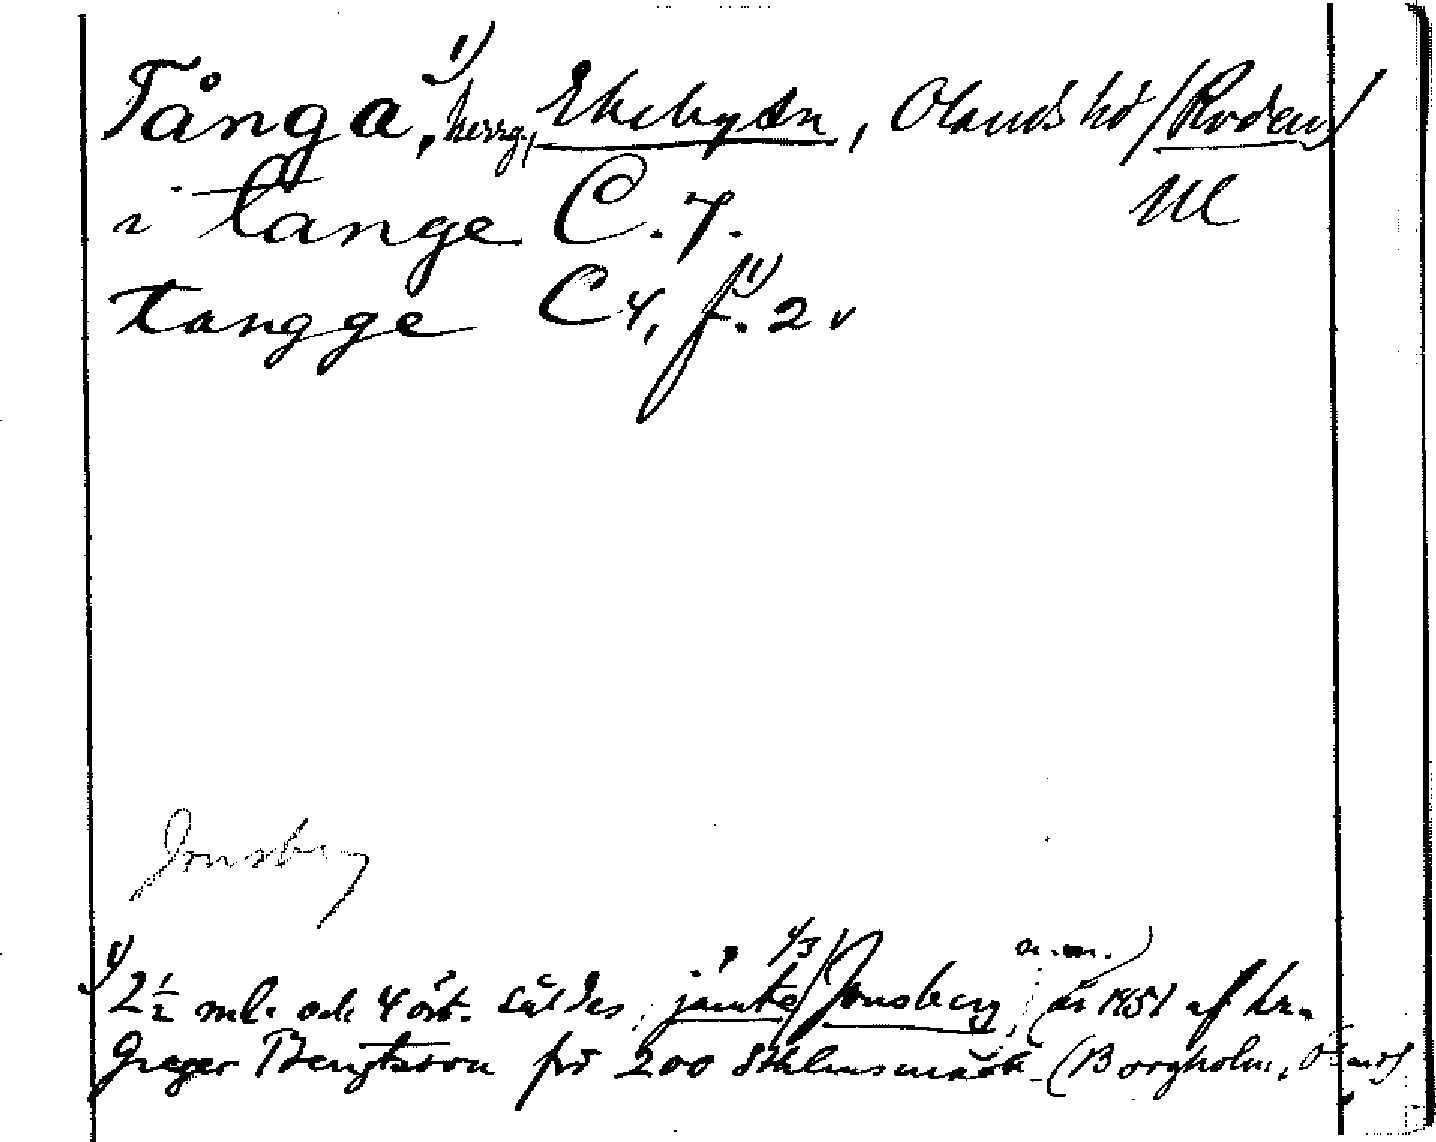 Tånga, 1) herrg., Ekebydn, Olands hd (Roden)
i tange C. 7. Ul
tangge C 4, f. 2 v 1)
Jonsberg
1) 2 1/2 ml. och 4 ört. såldes, jämte 4/3 (Jonsberg n.m.) år 1451 af hr.
Greger Bengtsson för 200 Sthlmsmark (Borgholm,